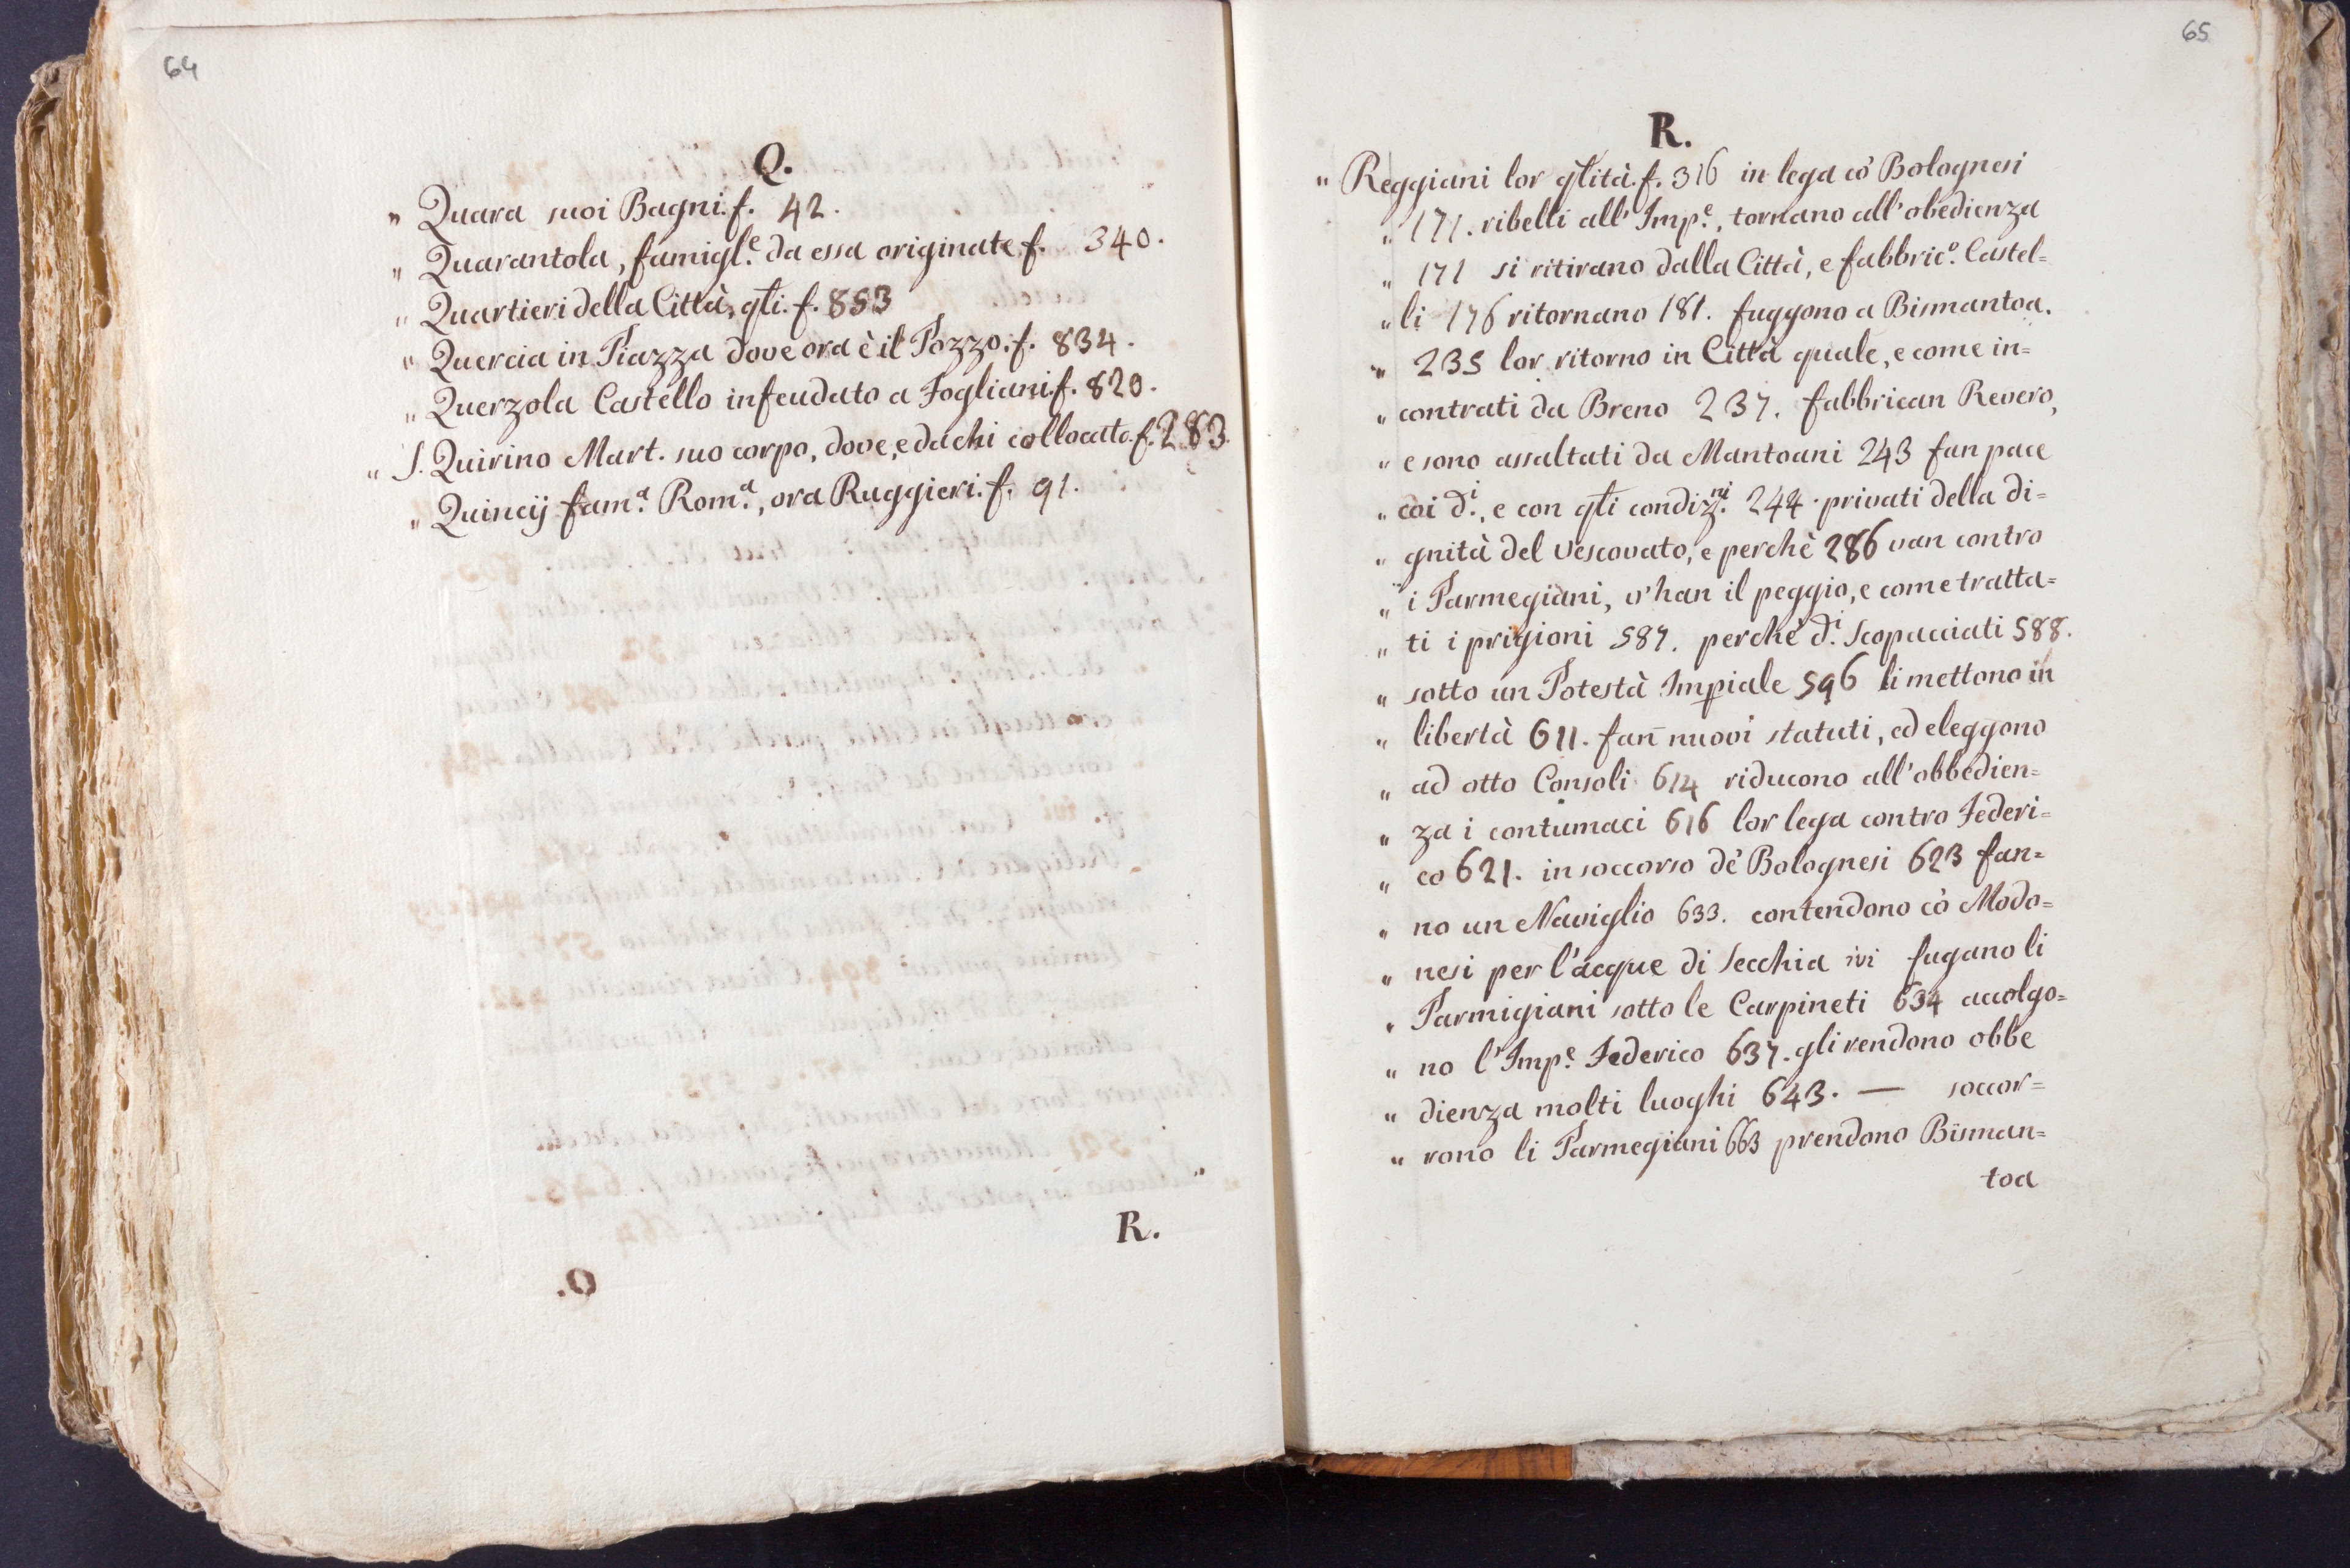 64
Q.
" Quara suoi Bagni. f. 42.
" Quarantola, famigl.e da essa originate f. 340.
" Quartieri della Città, qti. f. 853
" Quercia in Piazza dove ora è il Pozzo. f. 834.
" Querzola Castello infeudato a Fogliani. f. 820.
" S. Quirino Mart. suo corpo, dove, e da chi collocato. f. 283.
" Quincij fam.a Rom.a, ora Ruggieri. f. 91.
R.
65
R.
" Reggiani lor qlità. f. 316 in lega cò Bolognesi
" 171. ribelli all' Imp.e, tornano all'obedienza
" 171 si ritirano dalla Città, e fabbric.o Castel=
" li 176 ritornano 181. fuggono a Bismantoa.
" 235 lor ritorno in Città quale, e come in=
" contrati da Breno 237. fabbrican Revero,
" e sono assaltati da Mantoani 243 fan pace
" coi d.i, e con qti condiz.ni 244. privati della di=
" gnità del Vescovato, e perchè 286 van contro
" i Parmegiani, v'han il peggio, e come tratta=
" ti i prigioni 587. perchè d.i Scopacciati 588.
" sotto un Potestà Impiale 596 li mettono in
" libertà 611. fan̄ nuovi statuti, ed eleggono
" ad otto Consoli 614 riducono all'obbedien=
" za i contumaci 616 lor lega contro Federi=
" co 621. in soccorso dè Bolognesi 623 fan=
" no un Naviglio 633. contendono cò Modo=
" nesi per l'acque di Secchia ivi fugano li
" Parmigiani sotto le Carpineti 634 accolgo=
" no l'Imp.e Federico 637. gli rendono obbe
" dienza molti luoghi 643. — soccor=
" rono li Parmegiani 663 prendono Bisman=
toa